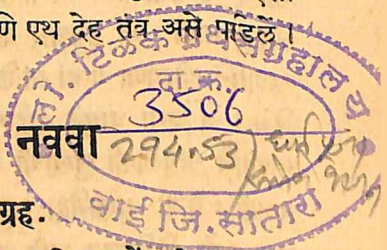 णि एथ देह तंव असे पाडलें ।
लो. टिळक ग्रंथसंग्रहालय
दा. क्र.
3506
नववा
294.53
ग्रह.
वाई जि. सातारा